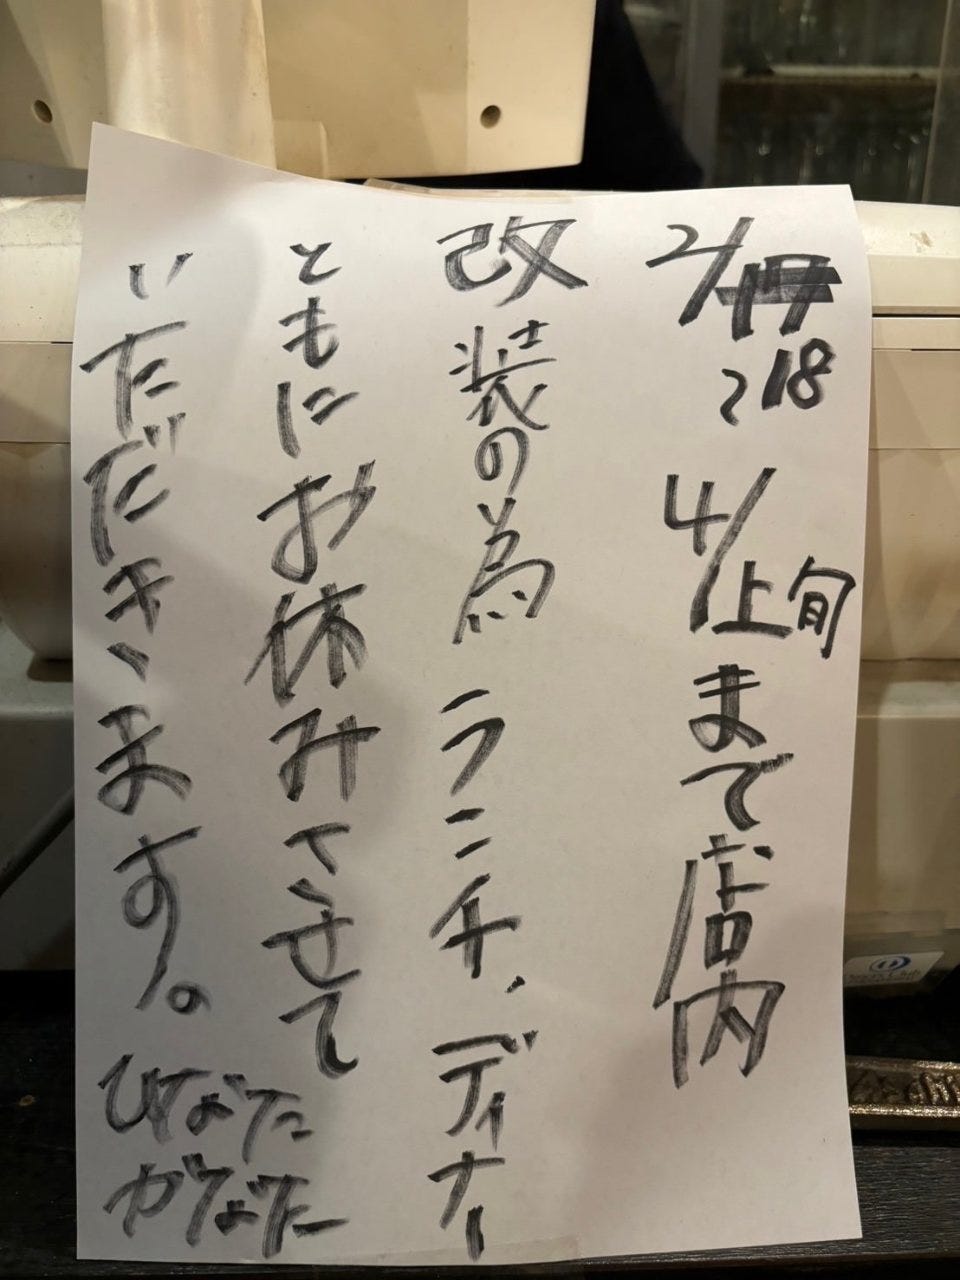 2/18 〜 4/上旬まで店内
改装の為 ランチ、ディナー
ともにお休みさせて
いただきます。
ひなた
かなた